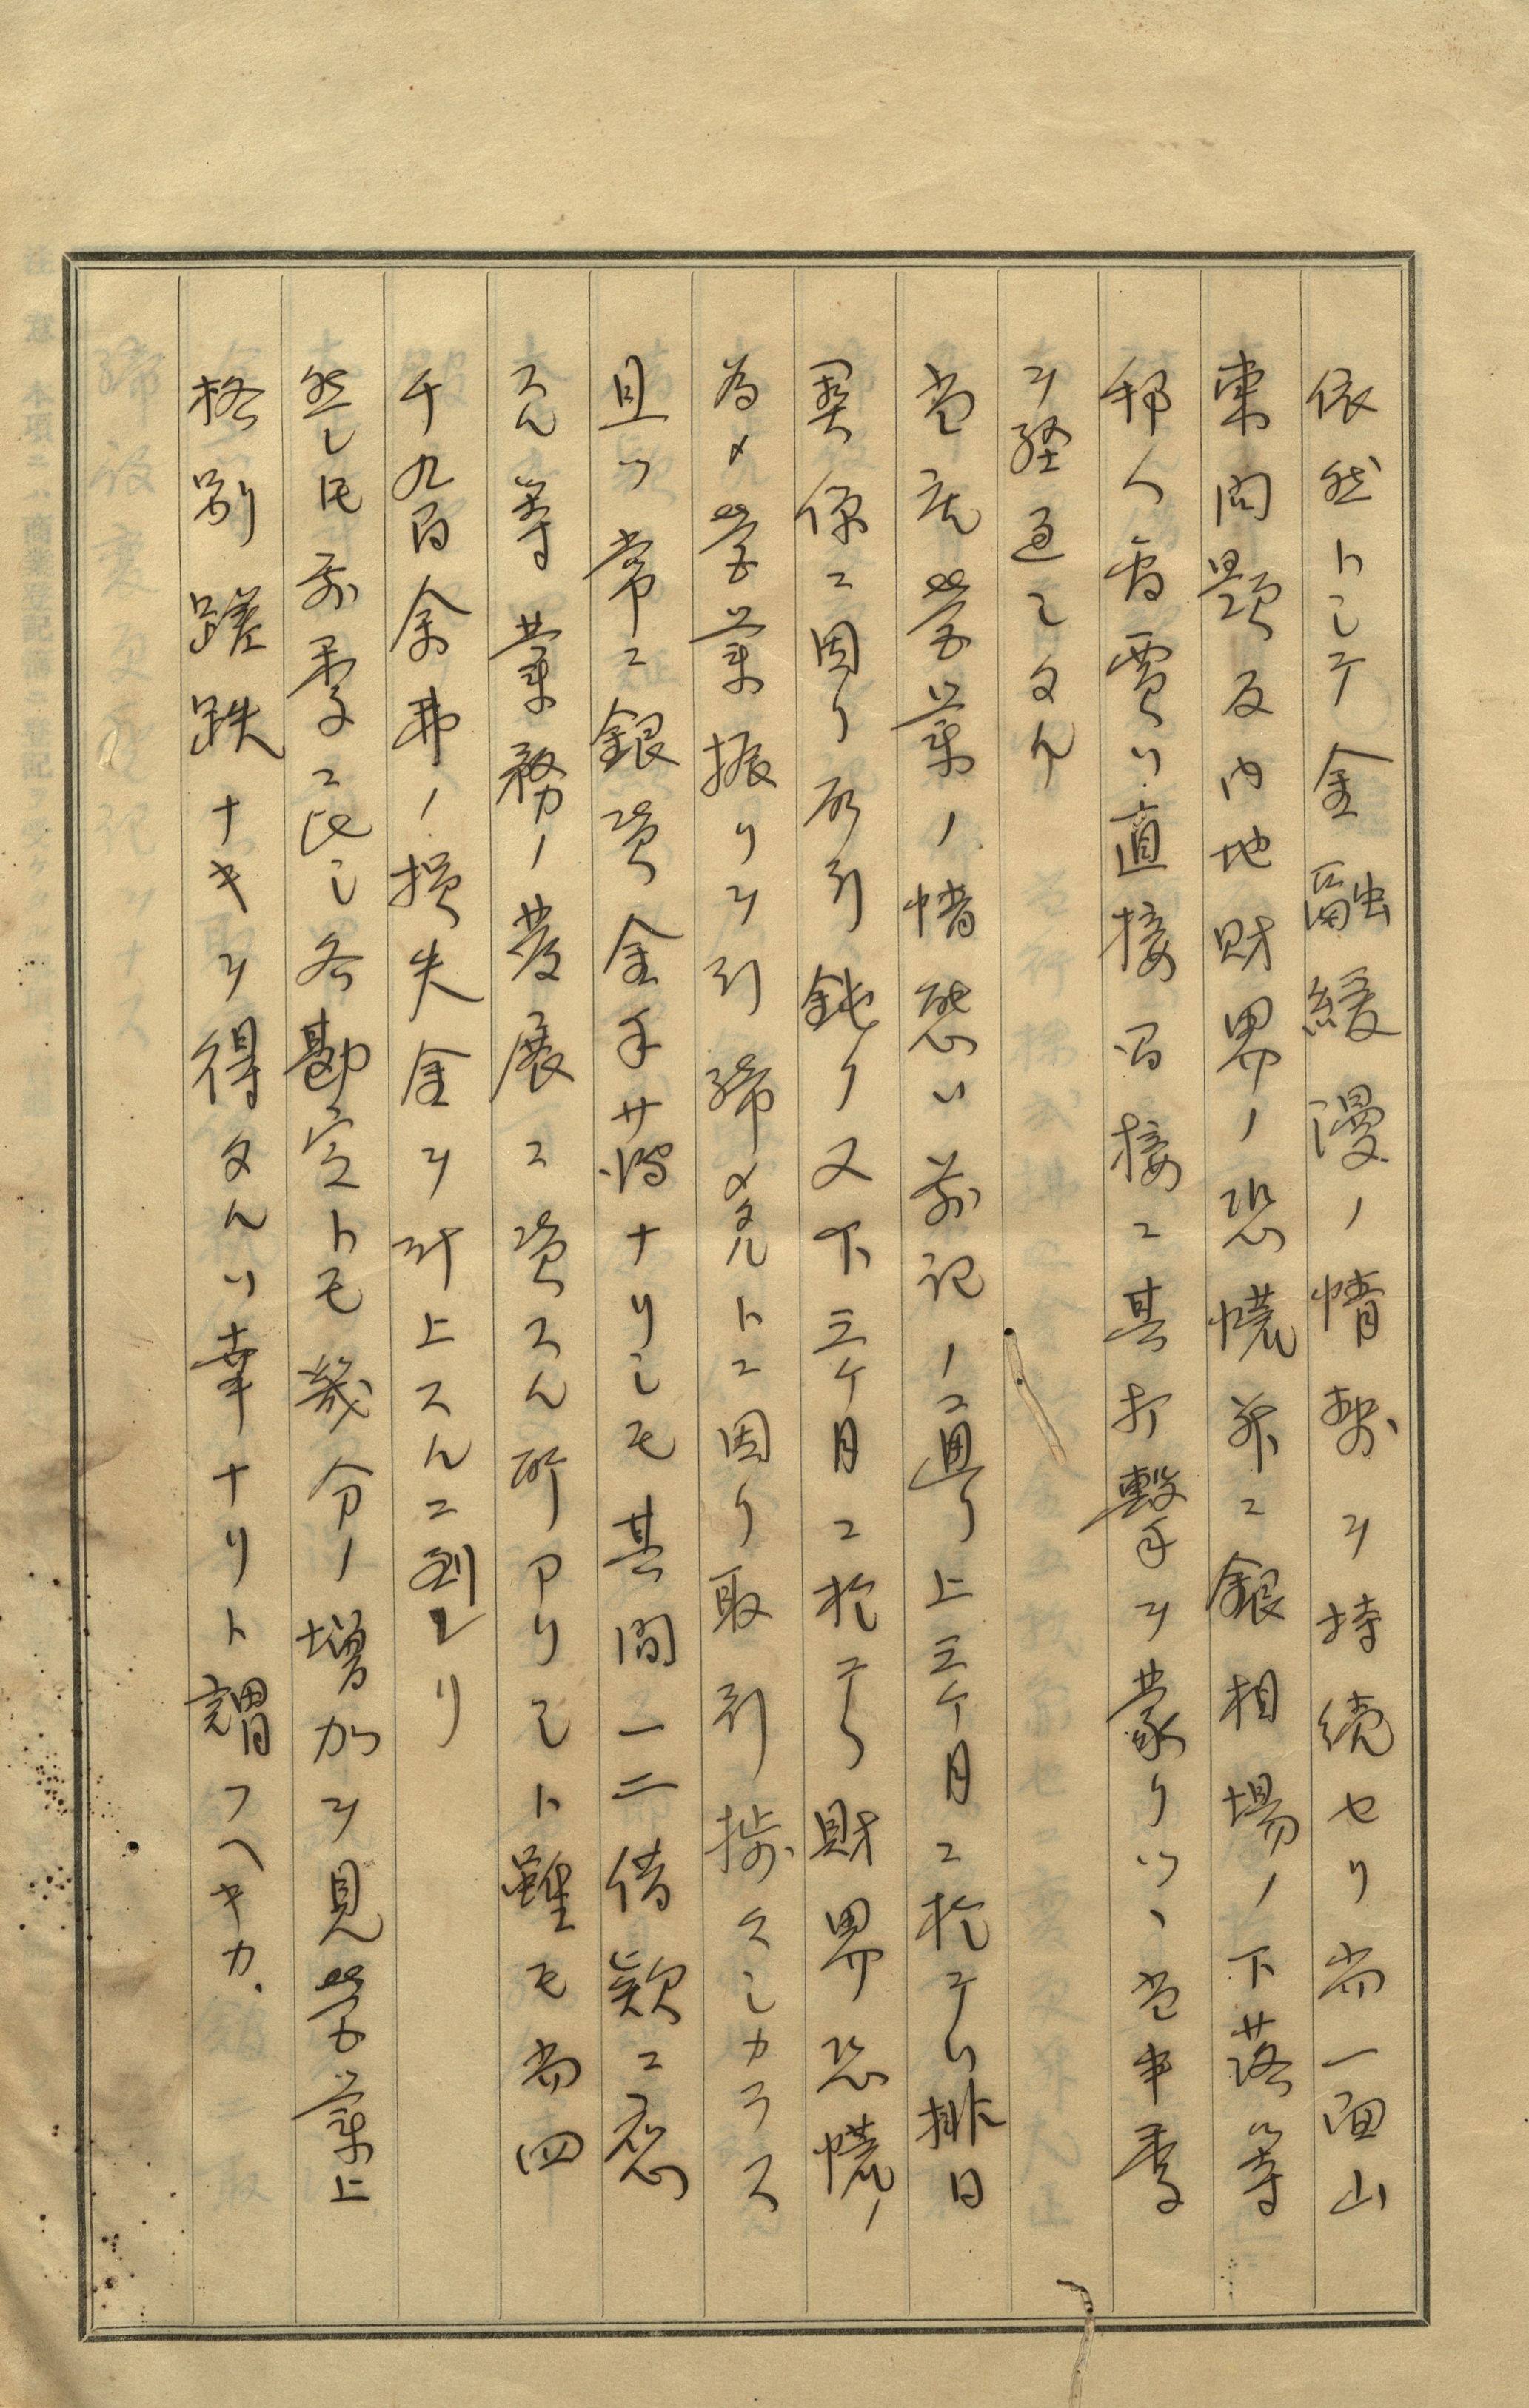 依然トシテ金融緩漫ノ情勢ヲ持続セリ尚一面山
東問題及内地財界ノ恐慌並ニ銀相場ノ下落等
邦人商賈ハ直接間接ニ其打撃ヲ蒙リツヽ当半季
ヲ経過シタル
当店営業ノ情態ハ前記ノ通リ上三ケ月ニ於テハ排日
関係ニ因リ取引鈍リ又下三ケ月ニ於テハ財界恐慌ノ
為メ営業振リヲ引締メタルトニ因リ取引捗々シカラス
且ツ常ニ銀資金手薄ナリシモ其間一二借欵ニ応
スル等業務ノ発展ニ資スル所アリシト雖モ尚四
千九百余弗ノ損失金ヲ計上スルニ到レリ
然レ氏前季ニ比シ各勘定トモ幾分ノ増加ヲ見営業上
格別蹉跌ナキヲ得タルハ幸ナリト謂フヘキカ